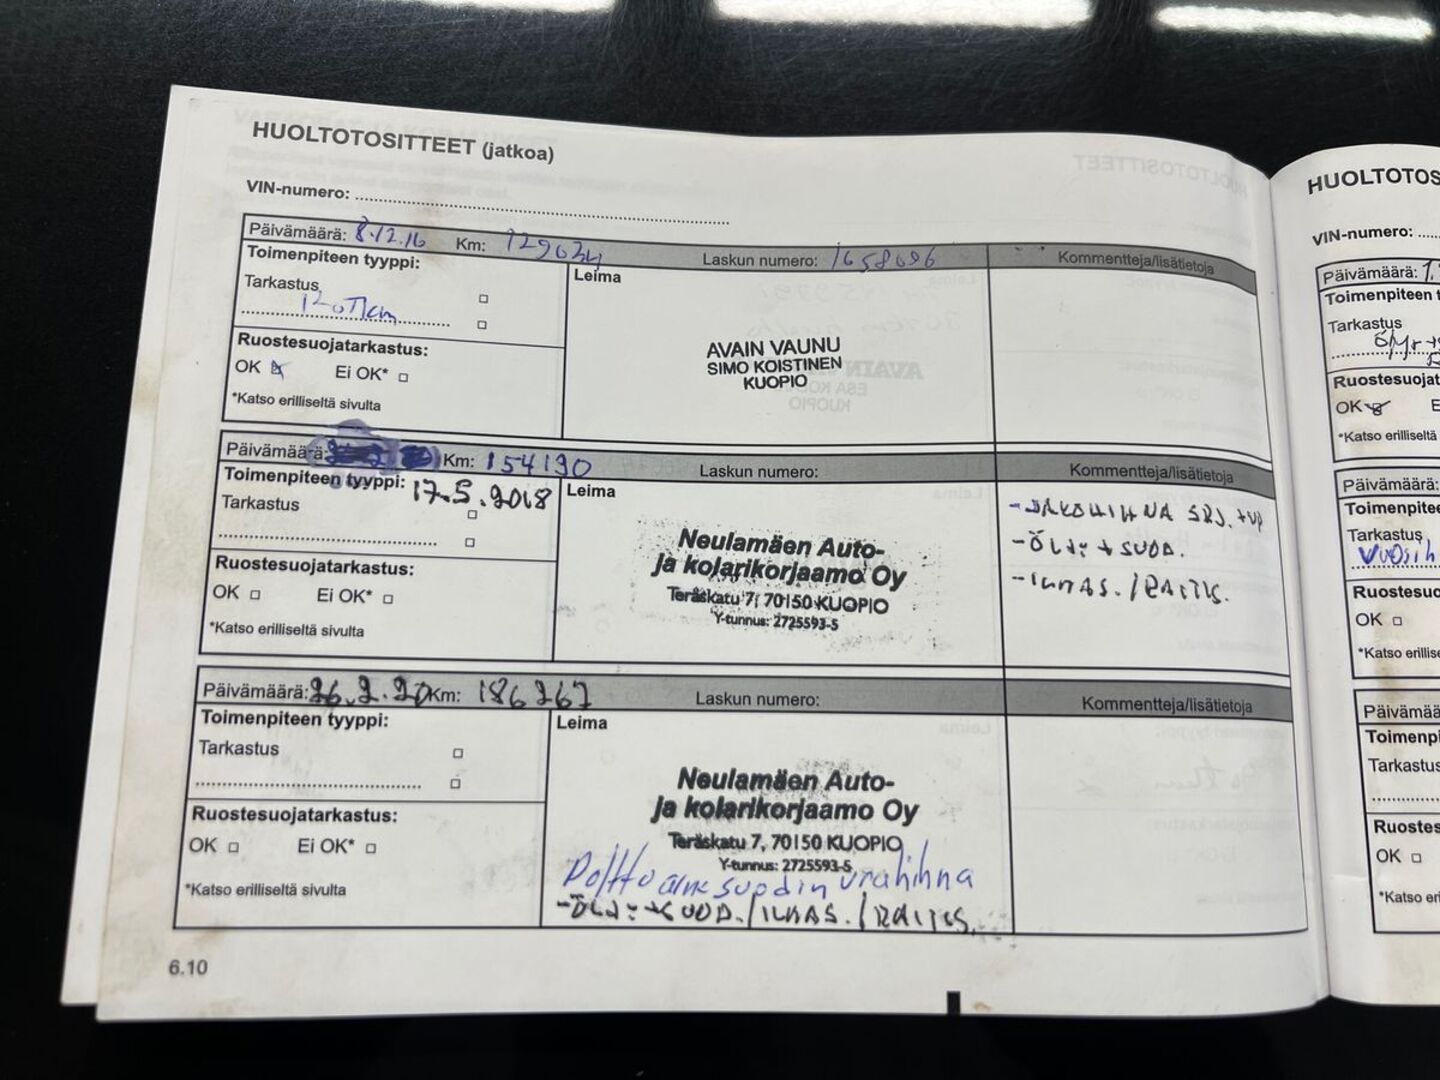 HUOLTOTOSITTEET (jatkoa)
VIN-numero:
Päivämäärä: 8.12.16 Km: 129034 Laskun numero: 1658096 Kommentteja/lisätietoja
Toimenpiteen tyyppi: Leima
Tarkastus
120 Tkm
Ruostesuojatarkastus:
OK Ei OK*
*Katso erilliseltä sivulta
AVAIN VAUNU
SIMO KOISTINEN
KUOPIO
Päivämäärä: Km: 154190 Laskun numero: Kommentteja/lisätietoja
Toimenpiteen tyyppi: 17.5.2018 Leima
Tarkastus
Ruostesuojatarkastus:
OK Ei OK*
*Katso erilliseltä sivulta
Neulamäen Auto-
ja kolarikorjaamo Oy
Teräskatu 7, 70150 KUOPIO
Y-tunnus: 2725593-5
-JAKOHIHNA SRJ. +VP
-ÖLJY + SUOD.
-ILMAS. / RAITIS.
Päivämäärä: 26.2.20 Km: 186267 Laskun numero: Kommentteja/lisätietoja
Toimenpiteen tyyppi: Leima
Tarkastus
Ruostesuojatarkastus:
OK Ei OK*
*Katso erilliseltä sivulta
Neulamäen Auto-
ja kolarikorjaamo Oy
Teräskatu 7, 70150 KUOPIO
Y-tunnus: 2725593-5
Polttoainesuodin urahihna
-ÖLJY + SUOD. / ILMAS. / RAITIS.
6.10
HUOLTOTOS
VIN-numero:
Päivämäärä:
Toimenpiteen t
Tarkastus
Ruostesuojat
OK E
*Katso erilliseltä
Päivämäärä:
Toimenpitee
Tarkastus
Ruostesuo
OK
*Katso erillise
Päivämää
Toimenpi
Tarkastus
Ruostes
OK
*Katso er